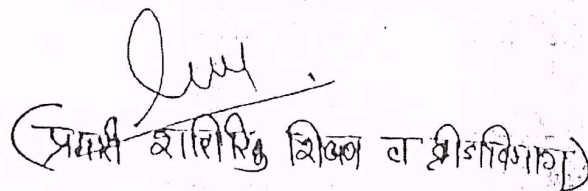 (प्रभारी शारिरिक शिक्षण व क्रीडाविभाग)